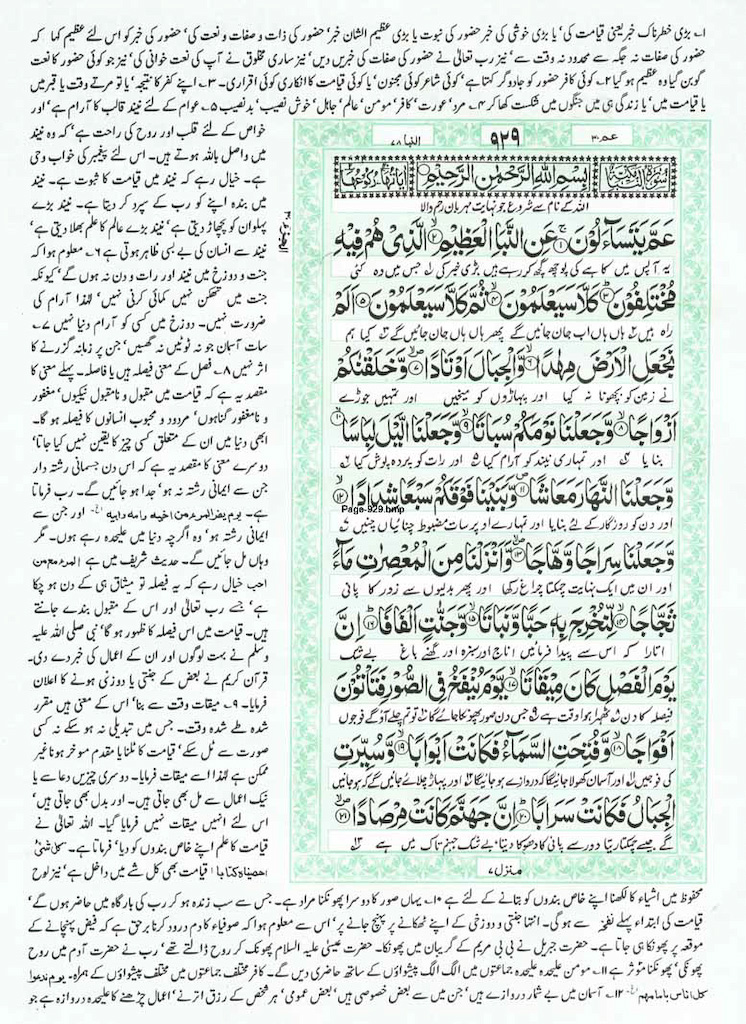 ۱۔ بڑی خطرناک خبر یعنی قیامت کی، یا بڑی خوشی کی خبر حضور کی نبوت یا بڑی عظیم الشان خبر، حضور کی ذات و صفات و نعت کی، حضور کی خبر کو اس لئے عظیم کہا کہ
حضور کی صفات نہ جگہ سے محدود نہ وقت سے، نیز رب تعالیٰ نے حضور کی صفات کی خبریں دیں، نیز ساری مخلوق نے آپ کی نعت خوانی کی، نیز جو کوئی حضور کا نعت
گو بن گیا وہ عظیم ہو گیا ۲۔ کوئی کافر حضور کو جادوگر کہتا ہے، کوئی شاعر کوئی مجنون، یا کوئی قیامت کا انکاری کوئی اقراری۔ ۳۔ اپنے کفر کا نتیجہ، یا تو مرتے وقت یا قبر میں
یا قیامت میں، یا زندگی ہی میں جنگوں میں شکست کھا کر ۴۔ مرد، عورت، کافر، مومن، عالم، جاہل، خوش نصیب، بد نصیب ۵۔ عوام کے لئے نیند قالب کا آرام ہے، اور
عم ۳۰
۹۲۹
النبا ۷۸
بِسْمِ اللهِ الرَّحْمٰنِ الرَّحِيْمِ
اللہ کے نام سے شروع جو نہایت مہربان رحم والا
عَمَّ يَتَسَآءَلُوْنَ ۱ عَنِ النَّبَاِ الْعَظِيْمِ ۲ الَّذِيْ هُمْ فِيْهِ
یہ آپس میں کاہے کی پوچھ گچھ کر رہے ہیں بڑی خبر کی جس میں وہ کئی
مُخْتَلِفُوْنَ ۳ كَلَّا سَيَعْلَمُوْنَ ۴ ثُمَّ كَلَّا سَيَعْلَمُوْنَ ۵ اَلَمْ
راہ ہیں ہاں ہاں اب جان جائیں گے پھر ہاں ہاں جان جائیں گے کیا ہم
نَجْعَلِ الْاَرْضَ مِهٰدًا ۶ وَّالْجِبَالَ اَوْتَادًا ۷ وَّخَلَقْنٰكُمْ
نے زمین کو بچھونا نہ کیا اور پہاڑوں کو میخیں اور تمہیں جوڑے
اَزْوَاجًا ۸ وَّجَعَلْنَا نَوْمَكُمْ سُبَاتًا ۹ وَّجَعَلْنَا الَّيْلَ لِبَاسًا ۱۰
بنایا اور تمہاری نیند کو آرام کیا اور رات کو پردہ پوش کیا
وَّجَعَلْنَا النَّهَارَ مَعَاشًا ۱۱ وَّبَنَيْنَا فَوْقَكُمْ سَبْعًا شِدَادًا ۱۲
Page-929.bmp
اور دن کو روزگار کے لئے بنایا اور تمہارے اوپر سات مضبوط چنائیاں چنیں
وَّجَعَلْنَا سِرَاجًا وَّهَّاجًا ۱۳ وَّاَنْزَلْنَا مِنَ الْمُعْصِرٰتِ مَآءً
اور ان میں ایک نہایت چمکتا چراغ رکھا اور پھر بدلیوں سے زور کا پانی
ثَجَّاجًا ۱۴ لِّنُخْرِجَ بِهٖ حَبًّا وَّنَبَاتًا ۱۵ وَّجَنّٰتٍ اَلْفَافًا ۱۶ اِنَّ
اتارا کہ اس سے پیدا فرمائیں اناج اور سبزہ اور گھنے باغ بے شک
يَوْمَ الْفَصْلِ كَانَ مِيْقَاتًا ۱۷ يَّوْمَ يُنْفَخُ فِي الصُّوْرِ فَتَاْتُوْنَ
فیصلہ کا دن ٹھہرا ہوا وقت ہے جس دن صور پھونکا جائے گا تو تم چلے آؤ گے فوجوں
اَفْوَاجًا ۱۸ وَّفُتِحَتِ السَّمَآءُ فَكَانَتْ اَبْوَابًا ۱۹ وَّسُيِّرَتِ
کی فوجیں اور آسمان کھولا جائے گا کہ دروازے ہو جائے گا اور پہاڑ چلائے جائیں گے کہ ہو جائیں
الْجِبَالُ فَكَانَتْ سَرَابًا ۲۰ اِنَّ جَهَنَّمَ كَانَتْ مِرْصَادًا ۲۱
گے جیسے چمکتا ریتا دور سے پانی کا دھوکا دیتا بے شک جہنم تاک میں ہے
منزل ۷
خواص کے لئے قلب اور روح کی راحت ہے، کہ وہ نیند
میں واصل باللہ ہوتے ہیں۔ اس لئے پیغمبر کی خواب وحی
ہے۔ خیال رہے کہ نیند میں قیامت کا ثبوت ہے۔ نیند
میں بندہ اپنے کو رب کے سپرد کر دیتا ہے۔ نیند بڑے
پہلوان کو پچھاڑ دیتی ہے، نیند بڑے عالم کا علم بھلا دیتی ہے،
نیند سے انسان کی بے بسی ظاہر ہوتی ہے ۶۔ معلوم ہوا کہ
جنت و دوزخ میں نیند اور رات و دن نہ ہوں گے، کیونکہ
جنت میں تھکن نہیں کمائی کرنی نہیں، لہٰذا آرام کی
ضرورت نہیں۔ دوزخ میں کسی کو آرام دینا نہیں ۷۔
سات آسمان جو نہ ٹوٹیں نہ گھسیں، جن پر زمانہ گزرنے کا
اثر نہیں ۸۔ فصل کے معنی فیصلہ ہیں یا فاصلہ۔ پہلے معنی کا
مقصد یہ ہے کہ قیامت میں مقبول و نامقبول نیکیوں، مغفور
و نامغفور گناہوں، مردود و محبوب انسانوں کا فیصلہ ہو گا۔
ابھی دنیا میں ان کے متعلق کسی چیز کا یقین نہیں کیا جاتا،
دوسرے معنی کا مقصد یہ ہے کہ اس دن جسمانی رشتہ دار
جن سے ایمانی رشتہ نہ ہو، جدا ہو جائیں گے۔ رب فرماتا
ہے۔ یوم یفر المرء من اخیہ وامہ وابیہ الخ۔ اور جن سے
ایمانی رشتہ ہو، وہ اگرچہ دنیا میں علیحدہ رہے ہوں۔ مگر
وہاں مل جائیں گے۔ حدیث شریف میں ہے المرء مع من
احب خیال رہے کہ یہ فیصلہ تو میثاق ہی کے دن ہو چکا
ہے، جسے رب تعالیٰ اور اس کے مقبول بندے جانتے
ہیں۔ قیامت میں اس فیصلہ کا ظہور ہو گا، نبی صلی اللہ علیہ
وسلم نے بہت لوگوں اور ان کے اعمال کی خبر دے دی۔
قرآن کریم نے بعض کے جنتی یا دوزخی ہونے کا اعلان
فرمایا۔ ۹۔ میقات وقت سے بنا، اس کے معنی ہیں مقرر
شدہ طے شدہ وقت۔ جس میں تبدیلی نہ ہو سکے نہ کسی
صورت سے ٹل سکے، قیامت کا ٹلنا یا مقدم موخر ہونا غیر
ممکن ہے لہٰذا اسے میقات فرمایا۔ دوسری چیزیں دعا سے یا
نیک اعمال سے مل بھی جاتی ہیں۔ اور بدل بھی جاتی ہیں،
اس لئے انہیں میقات نہیں فرمایا گیا۔ اللہ تعالیٰ نے
قیامت کا علم اپنے خاص بندوں کو دیا، فرماتا ہے۔ کل شئ
احصیناہ کتابا، قیامت بھی کل شے میں داخل ہے، نیز لوح
محفوظ میں اشیاء کا لکھنا اپنے خاص بندوں کو بتانے کے لئے ہے ۱۰۔ یہاں صور کا دوسرا پھونکنا مراد ہے۔ جس سے سب زندہ ہو کر رب کی بارگاہ میں حاضر ہوں گے،
قیامت کی ابتداء پہلے نفخہ سے ہو گی۔ انتہا جنتی و دوزخی کے اپنے ٹھکانے پر پہنچ جانے پر، اس سے معلوم ہوا کہ صوفیاء کا دم درود کرنا برحق ہے کہ فیض پہنچانے کے
موقعہ پر پھونکا ہی جاتا ہے۔ حضرت جبریل نے بی بی مریم کے گریبان میں پھونکا۔ حضرت عیسیٰ علیہ السلام پھونک کر روح ڈالتے تھے، رب نے حضرت آدم میں روح
پھونکی، پھونکنا موثر ہے ۱۱۔ مومن علیحدہ علیحدہ جماعتوں میں الگ الگ پیشواؤں کے ساتھ حاضری دیں گے۔ کافر مختلف جماعتوں میں مختلف پیشواؤں کے ہمراہ۔ یوم ندعوا
کل اناس بامامہم الخ ۱۲۔ آسمان میں بے شمار دروازے ہیں، جن میں سے بعض خصوصی ہیں، بعض عمومی، ہر شخص کے رزق اترنے، اعمال چڑھنے کا علیحدہ دروازہ ہے جو